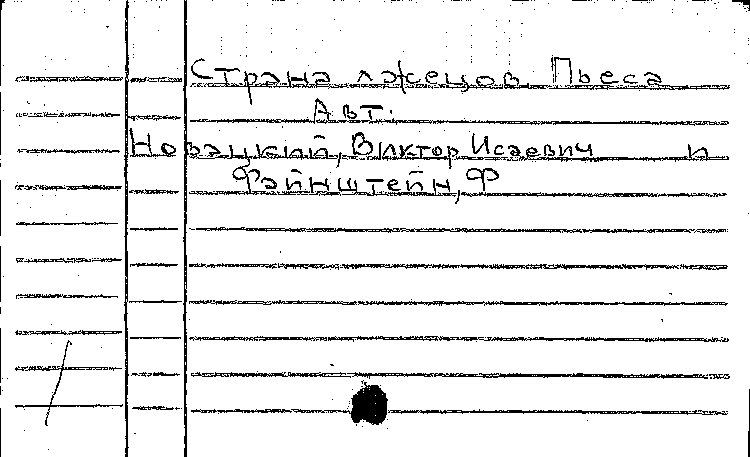 Страна лжецов. Пьеса
Авт.
Новацкий, Виктор Исаевич и
Файнштейн, Ф